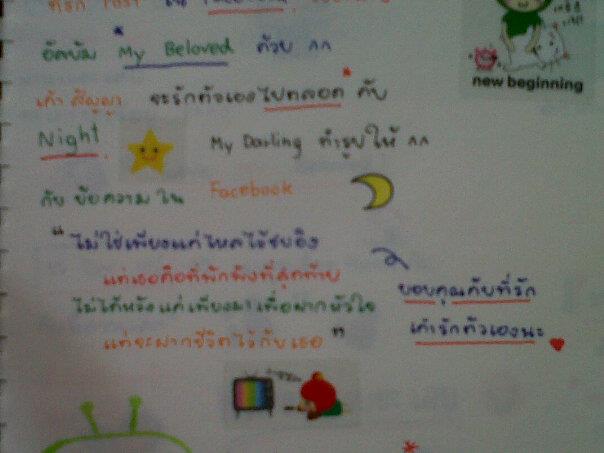 อัลบัม "My Beloved ด้วย ^^
new beginning
เค้า สัญญา จะรักตัวเองไปตลอด คับ
Night
My Darling ทำรูปให้ ^^
กับ ข้อความ ใน Facebook
"ไม่ใช่เพียงแค่ไหล่ไว้ซบอิง
แต่เธอคือที่พักพิงที่สุดท้าย
ไม่ได้หวังแค่เพียงมาเพื่อฝากหัวใจ
แต่จะฝากชีวิตไว้กับเธอ"
ขอบคุณคับที่รัก
เค้ารักตัวเองนะ